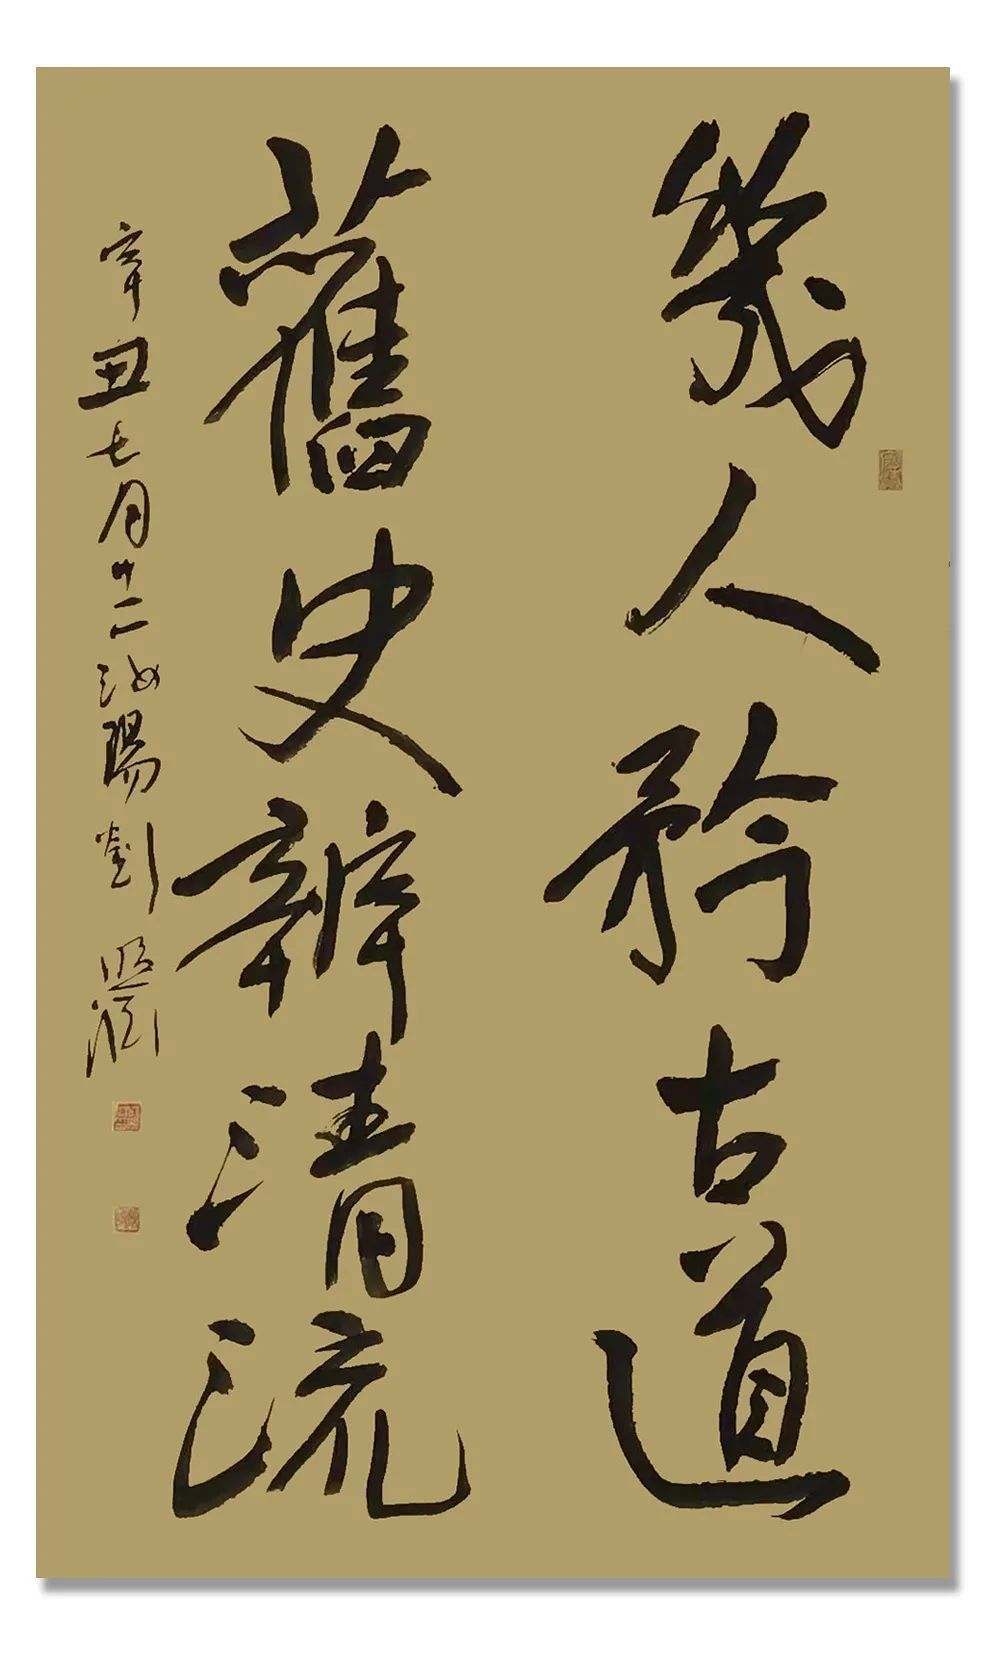 幾人矜古道
舊史辨清流
辛丑七月十二汝陽劉